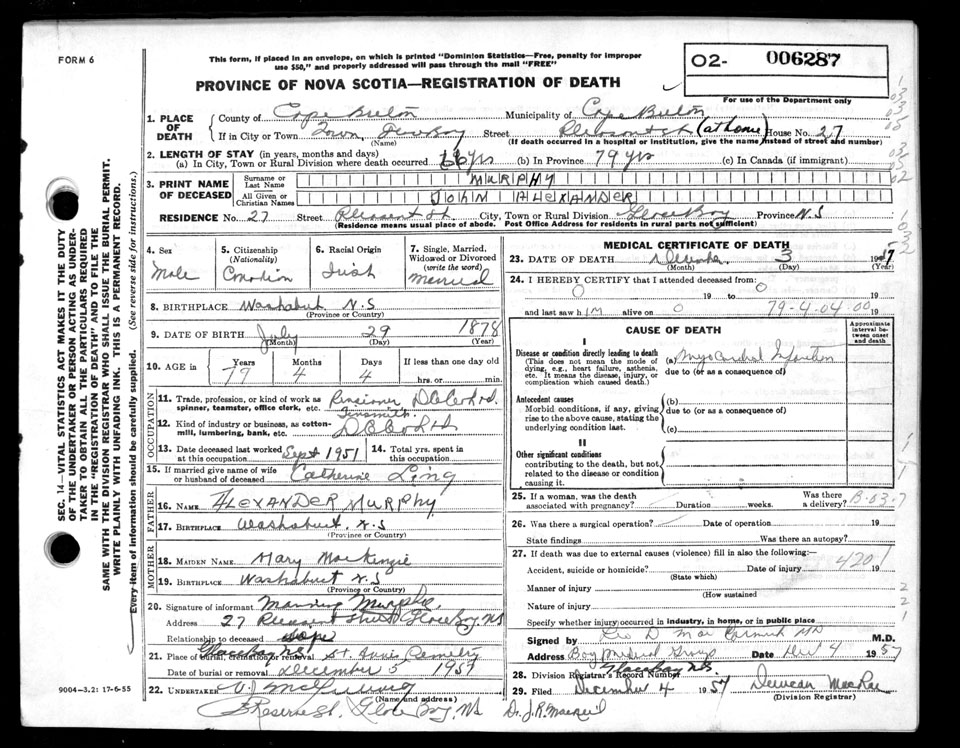 FORM 6
This form, if placed in an envelope, on which is printed "Dominion Statistics—Free, penalty for improper
use $50," and properly addressed will pass through the mail "FREE"
PROVINCE OF NOVA SCOTIA—REGISTRATION OF DEATH
O2- 006287
For use of the Department only
1. PLACE OF DEATH
County of Cape Breton Municipality of Cape Breton
If in City or Town Town Street Pleasant St (at home) House No. 27
(Name) (If death occurred in a hospital or institution, give the name instead of street and number)
2. LENGTH OF STAY (in years, months and days)
(a) In City, Town or Rural Division where death occurred 66 yrs (b) In Province 79 yrs (c) In Canada (if immigrant)
3. PRINT NAME OF DECEASED
Surname or Last Name MURPHY
All Given or Christian Names JOHN ALEXANDER
RESIDENCE No. 27 Street Pleasant St. City, Town or Rural Division Glace Bay Province N.S
(Residence means usual place of abode. Post Office Address for residents in rural parts not sufficient)
4. Sex Male
5. Citizenship (Nationality) Canadian
6. Racial Origin Irish
7. Single, Married, Widowed or Divorced (write the word) Married
8. BIRTHPLACE Washabuck N.S
(Province or Country)
9. DATE OF BIRTH July 29 1878
(Month) (Day) (Year)
10. AGE Years 79 Months 4 Days 4 If less than one day old hrs. or min.
OCCUPATION
11. Trade, profession, or kind of work as spinner, teamster, office clerk, etc. Pensioner
Tinsmith
12. Kind of industry or business, as cotton-mill, lumbering, bank, etc.
13. Date deceased last worked at this occupation Sept 1951
14. Total yrs. spent in this occupation
15. If married give name of wife or husband of deceased Catherine Ling
FATHER
16. NAME ALEXANDER MURPHY
17. BIRTHPLACE Washabuck, N.S
(Province or Country)
MOTHER
18. MAIDEN NAME Mary MacKenzie
19. BIRTHPLACE Washabuck N.S
(Province or Country)
20. Signature of informant Murphy
Address 27 Pleasant Street Glace Bay, NS
Relationship to deceased
Glace Bay NS
21. Place of burial, cremation or removal St. Anns Cemetery
Date of burial or removal December 5 1957
22. UNDERTAKER V.J. McGillivray
(Name and address)
Reserve St. Glace Bay, NS Dr. J.R. Macneil
MEDICAL CERTIFICATE OF DEATH
23. DATE OF DEATH December 3 1957
(Month) (Day) (Year)
24. I HEREBY CERTIFY that I attended deceased from:
0 19 to 0 19
and last saw h im alive on 0 79-4-04-00 19
CAUSE OF DEATH
Approximate interval between onset and death
I
Disease or condition directly leading to death
(This does not mean the mode of dying, e.g., heart failure, asthenia, etc. It means the disease, injury, or complication which caused death.)
(a) Myocardial Infarction
due to (or as a consequence of)
Antecedent causes
Morbid conditions, if any, giving rise to the above cause, stating the underlying condition last.
(b)
due to (or as a consequence of)
(c)
II
Other significant conditions
contributing to the death, but not related to the disease or condition causing it.
25. If a woman, was the death associated with pregnancy? Duration weeks. Was there a delivery? B-03-7
26. Was there a surgical operation? Date of operation 19
State findings Was there an autopsy?
27. If death was due to external causes (violence) fill in also the following:
Accident, suicide or homicide? Date of injury 4201 19
(State which)
Manner of injury
(How sustained)
Nature of injury
Specify whether injury occurred in industry, in home, or in public place
Signed by Leo D MacCormick MD M.D.
Address Bay Medical Group Date Dec 4 1957
Glace Bay NS
28. Division Registrar's Record Number
29. Filed December 4 1957 Duncan MacRae
(Division Registrar)
SEC. 14—VITAL STATISTICS ACT MAKES IT THE DUTY
OF THE UNDERTAKER OR PERSON ACTING AS UNDER-
TAKER TO OBTAIN ALL THE PARTICULARS REQUIRED
IN THE "REGISTRATION OF DEATH" AND TO FILE THE
SAME WITH THE DIVISION REGISTRAR WHO SHALL ISSUE THE BURIAL PERMIT.
WRITE PLAINLY WITH UNFADING INK. THIS IS A PERMANENT RECORD.
Every item of information should be carefully supplied. (See reverse side for instructions.)
9004—3.2: 17-6-55